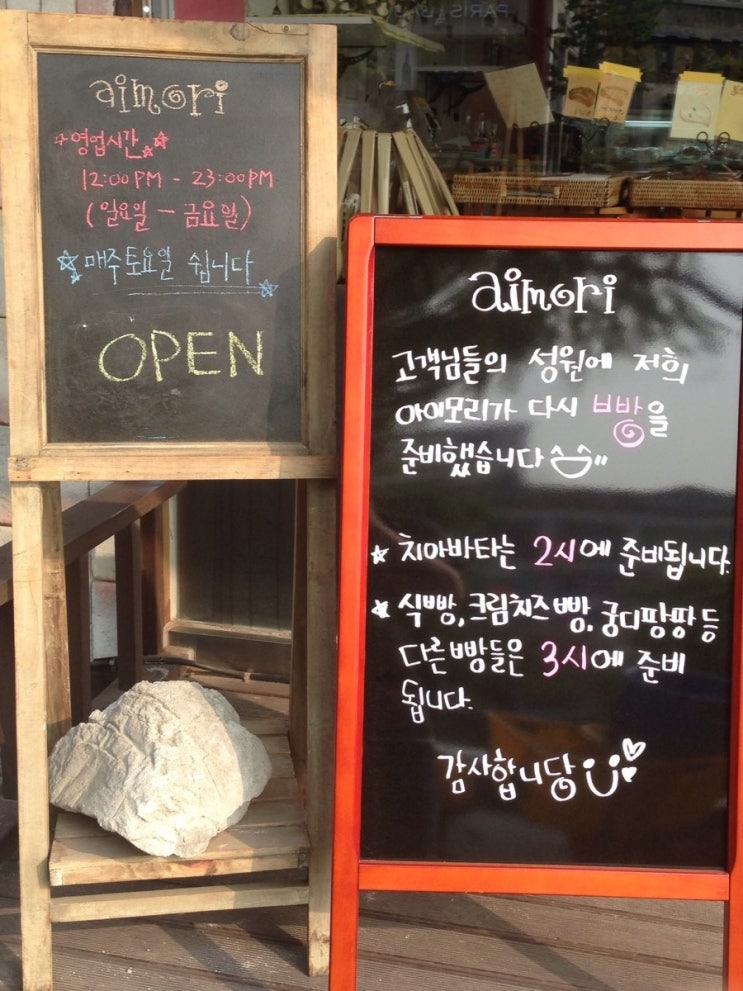 PARIS
aimori
영업시간
12:00PM - 23:00PM
(일요일 - 금요일)
매주 토요일 쉽니다
OPEN
aimori
고객님들의 성원에 저희
아이모리가 다시 빵을
준비했습니다 ^^"
치아바타는 2시에 준비됩니다.
식빵, 크림치즈빵, 궁디팡팡 등
다른 빵들은 3시에 준비
됩니다.
감사합니당